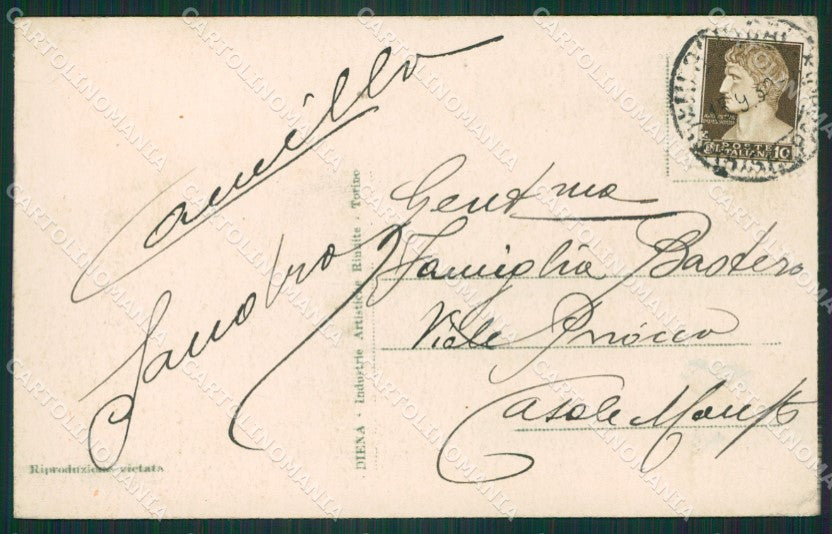 Camillo
Sandro
Gent.ma
Famiglia
Viale
Casale Monf.to
DIENA - Industrie Artistiche Riunite - Torino
Riproduzione vietata
POSTE
ITALIANE
10
CARTOLINOMANIA